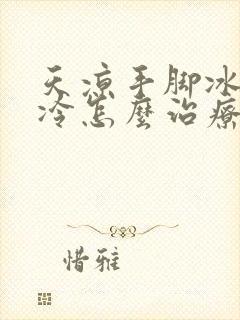 天凉手脚冰
冷怎麼治療
惜雅